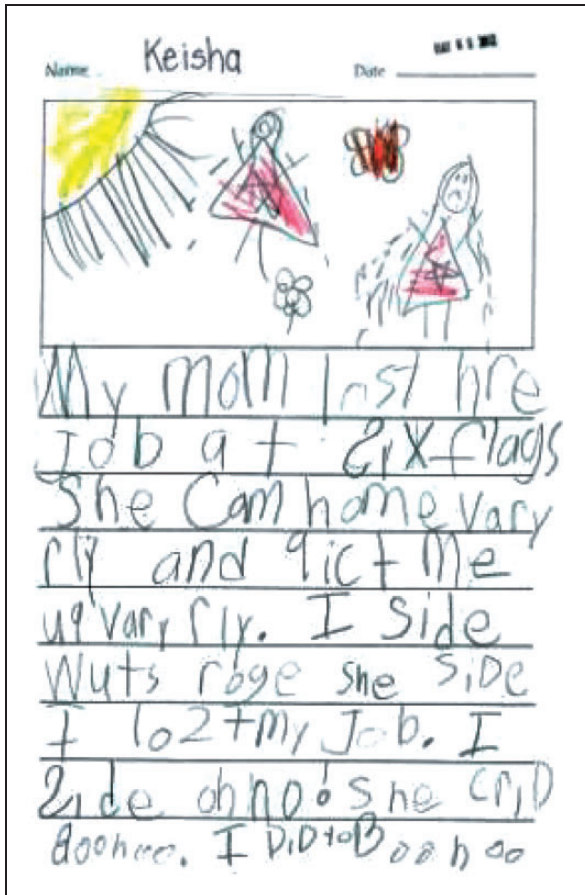 Name Keisha Date
My mom lost hre
Job at Six flags
She Cam home vary
rly and qict me
uq vary rly. I side
Wuts roge she SiDe
I lo2t my Job. I
Side oh no! She criD
Boohoo. I DiD to Boohoo